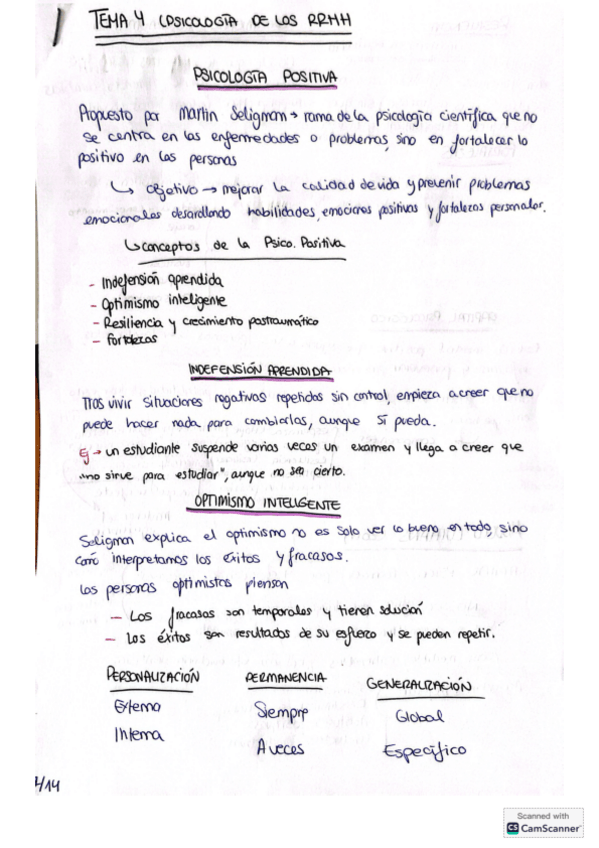 TEMA 4 (PSICOLOGÍA DE LOS RRHH
PSICOLOGÍA POSITIVA
Propuesto por Martin Seligman → rama de la psicología científica que no
se centra en las enfermedades o problemas, sino en fortalecer lo
positivo en las personas
↳ objetivo → mejorar la calidad de vida y prevenir problemas
emocionales desarollando habilidades, emociones positivas y fortalezas personales.
↳ conceptos de la Psico. Positiva
- Indefensión aprendida
- Optimismo inteligente
- Resiliencia y crecimiento postraumático
- fortalezas
INDEFENSIÓN APRENDIDA
Tras vivir situaciones negativas repetidas sin control, empieza a creer que no
puede hacer nada para cambiarlas, aunque sí pueda.
Ej → un estudiante suspende varias veces un examen y llega a creer que
"no sirve para estudiar", aunque no sea cierto.
OPTIMISMO INTELIGENTE
Seligman explica el optimismo no es solo ver lo bueno en todo, sino
como interpretamos los éxitos y fracasos.
Las personas optimistas piensan
- Los fracasos son temporales y tienen solución
- Los éxitos son resultados de su esfuerzo y se pueden repetir.
PERSONALIZACIÓN PERMANENCIA GENERALIZACIÓN
Externa Siempre Global
Interna A veces Específico
1/14
Scanned with
CS CamScanner